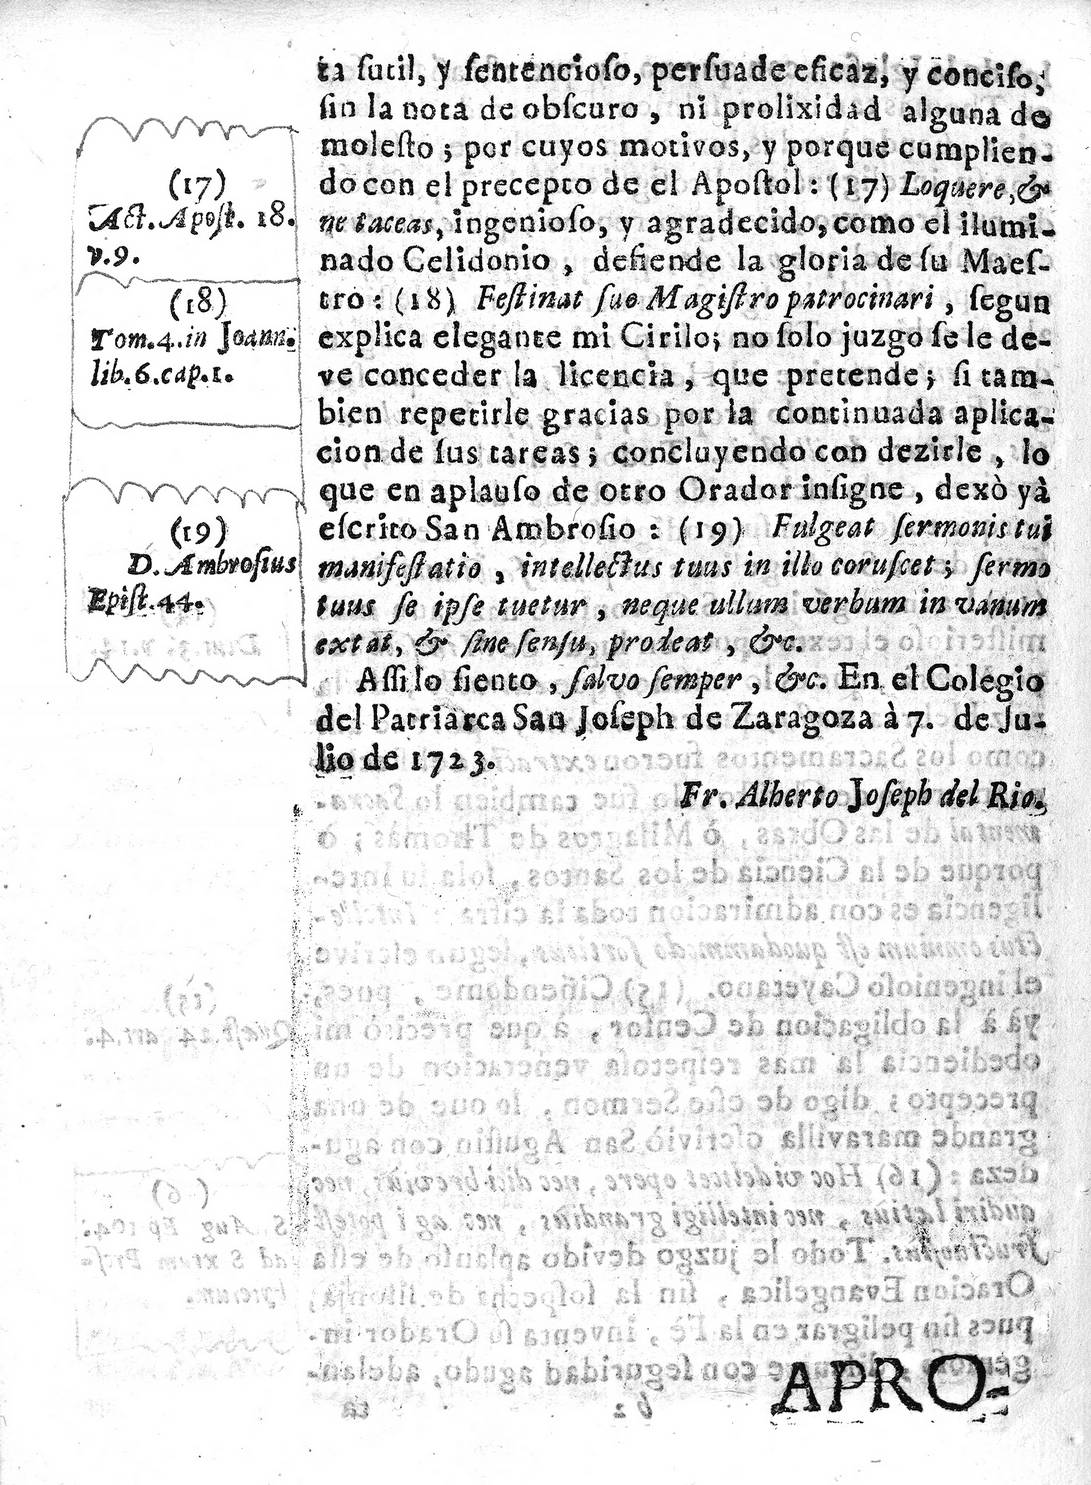 ta ſutil, y ſentencioſo, perſuade eficaz, y conciſo,
ſin la nota de obſcuro, ni prolixidad alguna de
moleſto; por cuyos motivos, y porque cumplien-
do con el precepto de el Apoſtol: (17) Loquere, &
ne taceas, ingenioſo, y agradecido, como el ilumi-
nado Celidonio, defiende la gloria de ſu Maeſ-
tro: (18) Feſtinat ſuo Magiſtro patrocinari, ſegun
explica elegante mi Cirilo; no ſolo juzgo ſe le de-
ve conceder la licencia, que pretende; ſi tam-
bien repetirle gracias por la continuada aplica-
cion de ſus tareas; concluyendo con dezirle, lo
que en aplauſo de otro Orador inſigne, dexò yà
eſcrito San Ambroſio: (19) Fulgeat ſermonis tui
manifeſtatio, intellectus tuus in illo coruſcet; ſermo
tuus ſe ipſe tuetur, neque ullum verbum in vanum
extat, & ſine ſenſu, prodeat, &c.
Aſſi lo ſiento, ſalvo ſemper, &c. En el Colegio
del Patriarca San Joſeph de Zaragoza à 7. de Ju-
lio de 1723.
Fr. Alberto Joſeph del Rio.
(17)
Act. Apoſt. 18.
v.9.
(18)
Tom.4.in Joann.
lib.6.cap.1.
(19)
D. Ambroſius
Epiſt.44.
APRO-